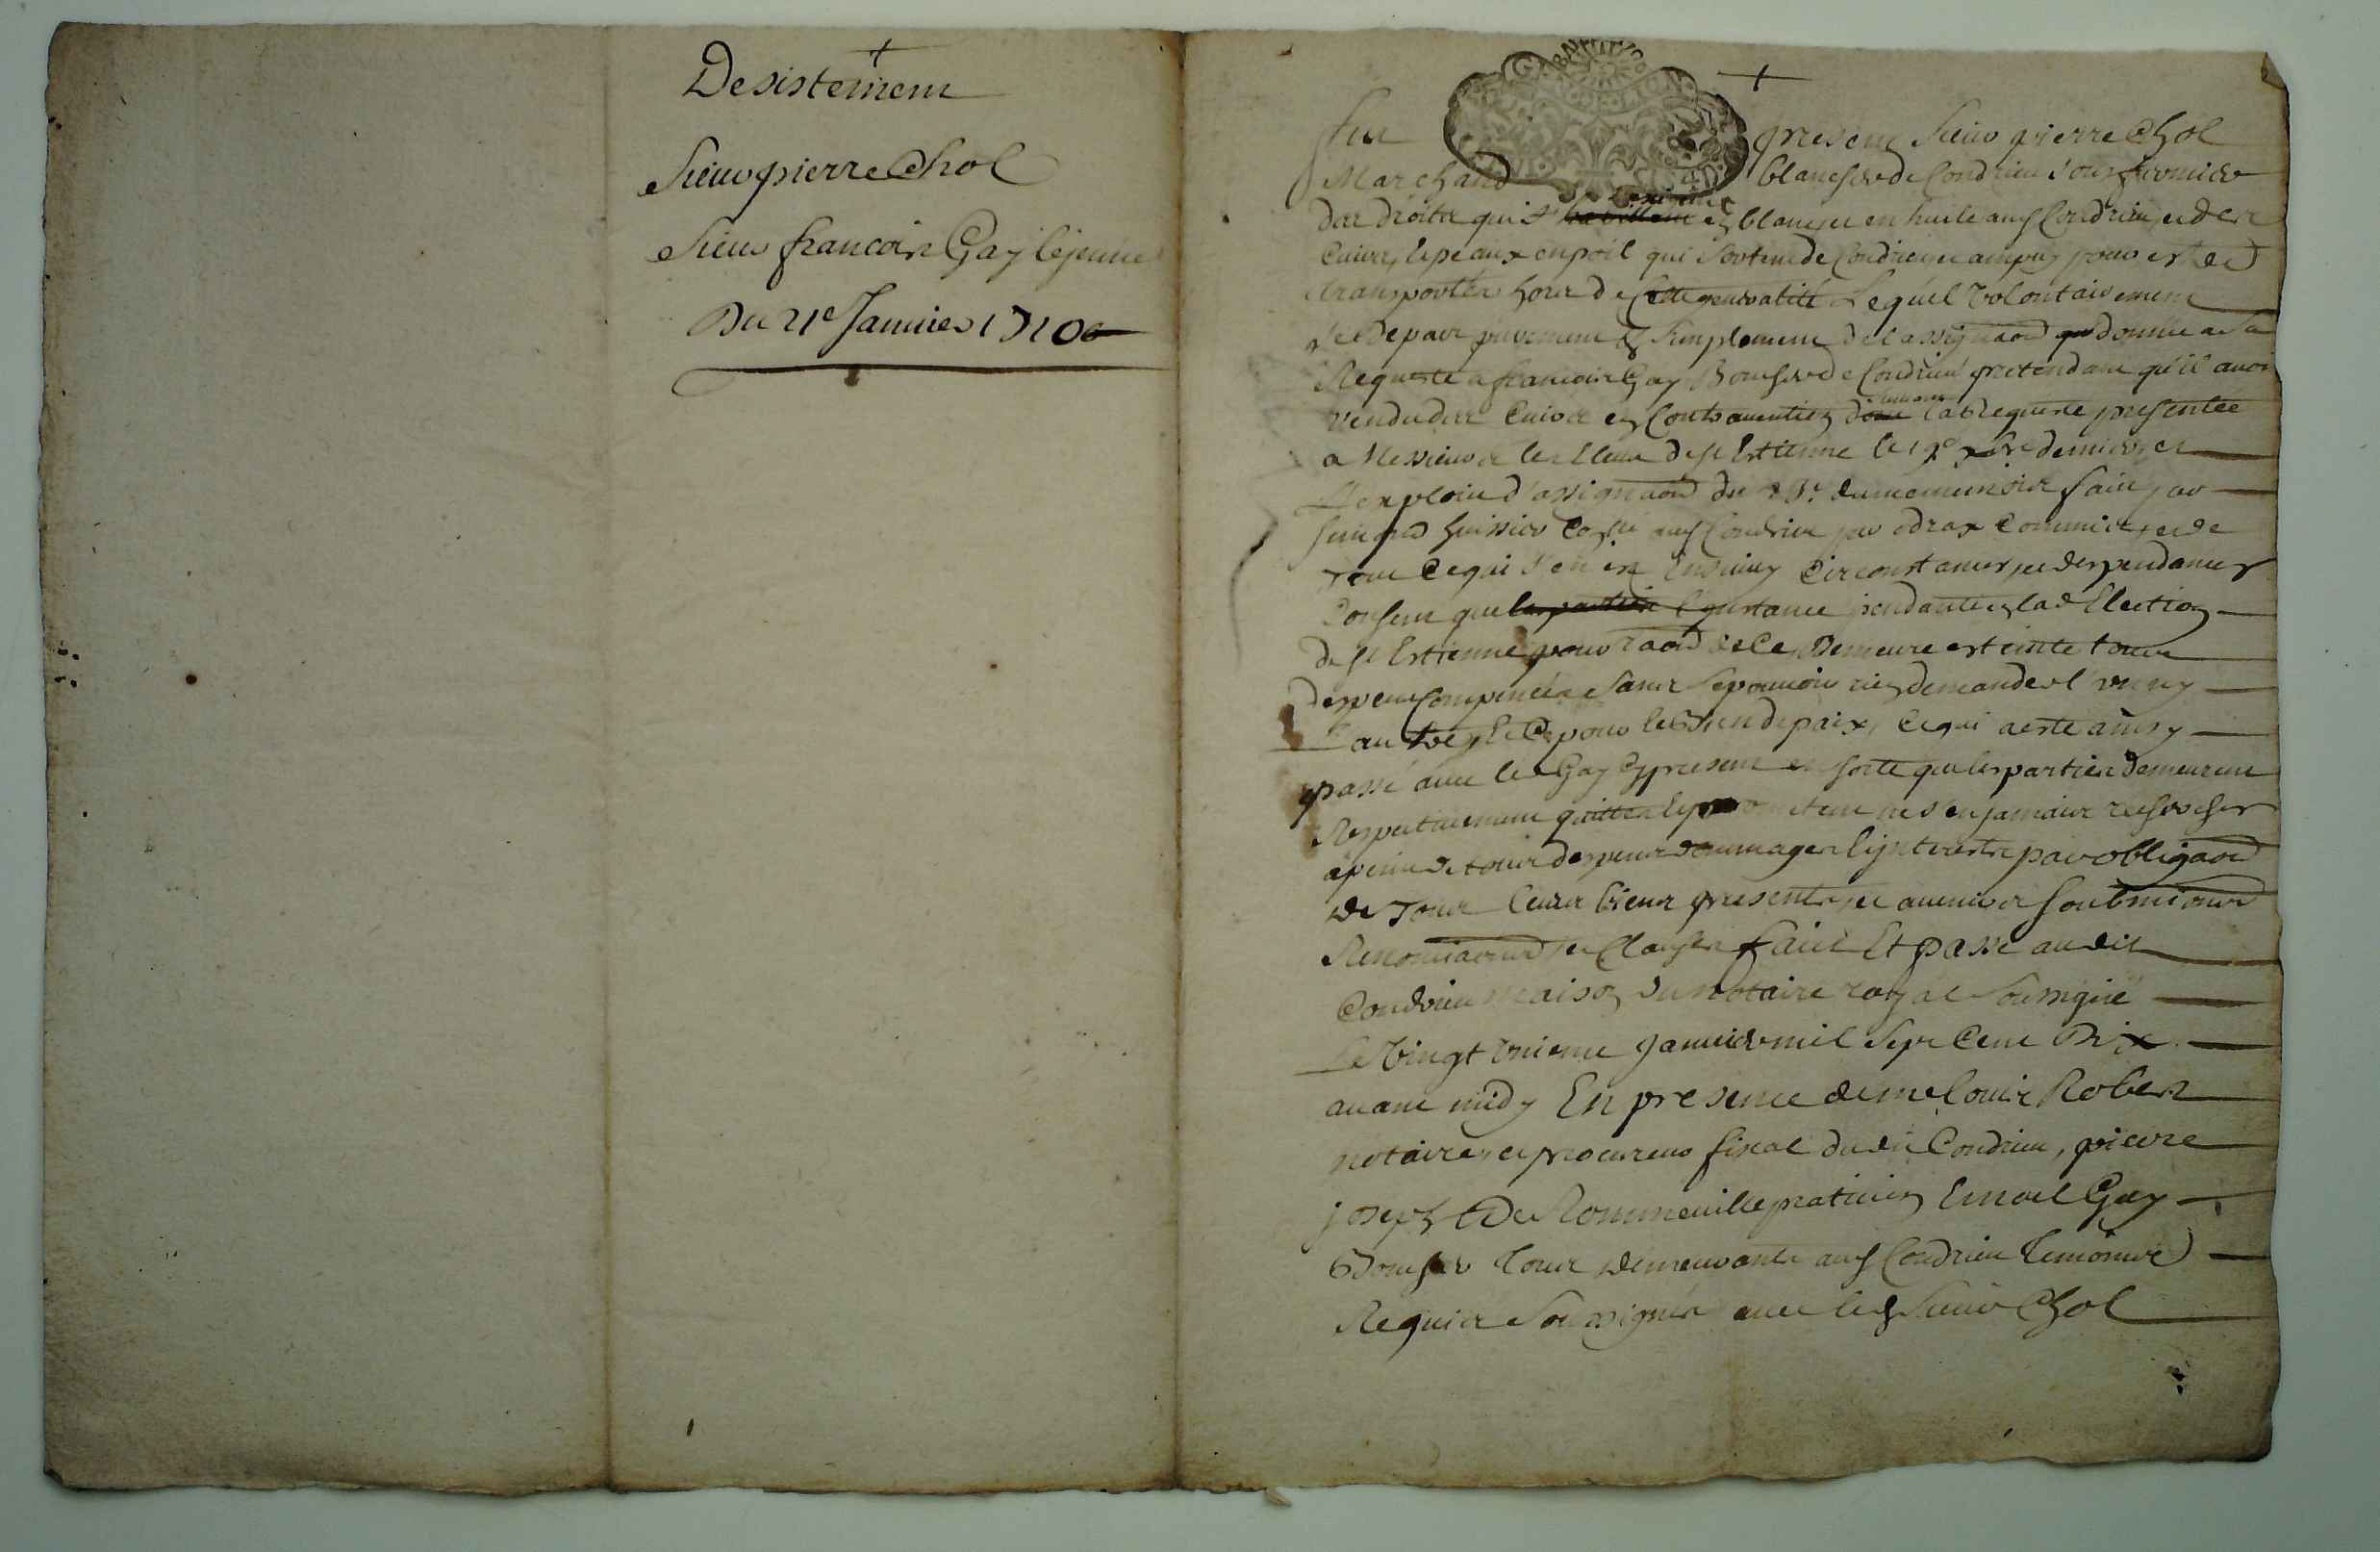 Desistement
Sieur pierre Chol
Sieur francois Gay lejeune
Du 21e Januier 1710
fut present Sieur pierre Chol
Marchand blancher de Condrieu sous fermier
des droits qui se en blanc et en huile aud Condrieu, et des
Cuirs, et peaux en poil qui sortent de Condrieu et ampuy pour estre
transportés hors de cette generalité Lequel volontairement
se depart purement & simplement de l assignaon donnée a sa
Requeste a francois Gay Boucher de Condrieu pretendant qu'il auoit
vendu des Cuirs en Contrauention la Requeste presentée
a Messieurs les Eleus de st Estienne le xbre dernier, et
l exploict d'assignaon du du mesme mois faict par
huissier aud Condrieu par Commis, et de
tout Ce qui s'en est Ensuiuy Circonstances, et despendances
Consent que les parties l'Instance pendante en lad Election
de st Estienne pour raon de Ce Demeure esteinte tous
despens Compensés sans se pouuoir rien demander l'vn ny
l'autre, et Ce pour le bien de paix, Ce qui a esté ainsy
passé auec led Gay Cy present en sorte que les parties demeurent
Respectiuement quittes et promettent ne s'en jamais rechercher
a peine de tous despens dommages et jnterests par obligaon
de Tous leurs biens presents, et auenirs soubmions
Renonciaons, et Clauses faict Et passé audit
Condrieu maison du notaire royal soussigné
Le vingt vnieme januier mil sept Cent Dix
auant midy En presence de me Louis Robert
notaire, et procureur fiscal dudit Condrieu, pierre
joseph De Rommeuille praticien Gay
Boucher tous demeurants aud Condrieu temoins
Requis soussignés auec led Sieur Chol